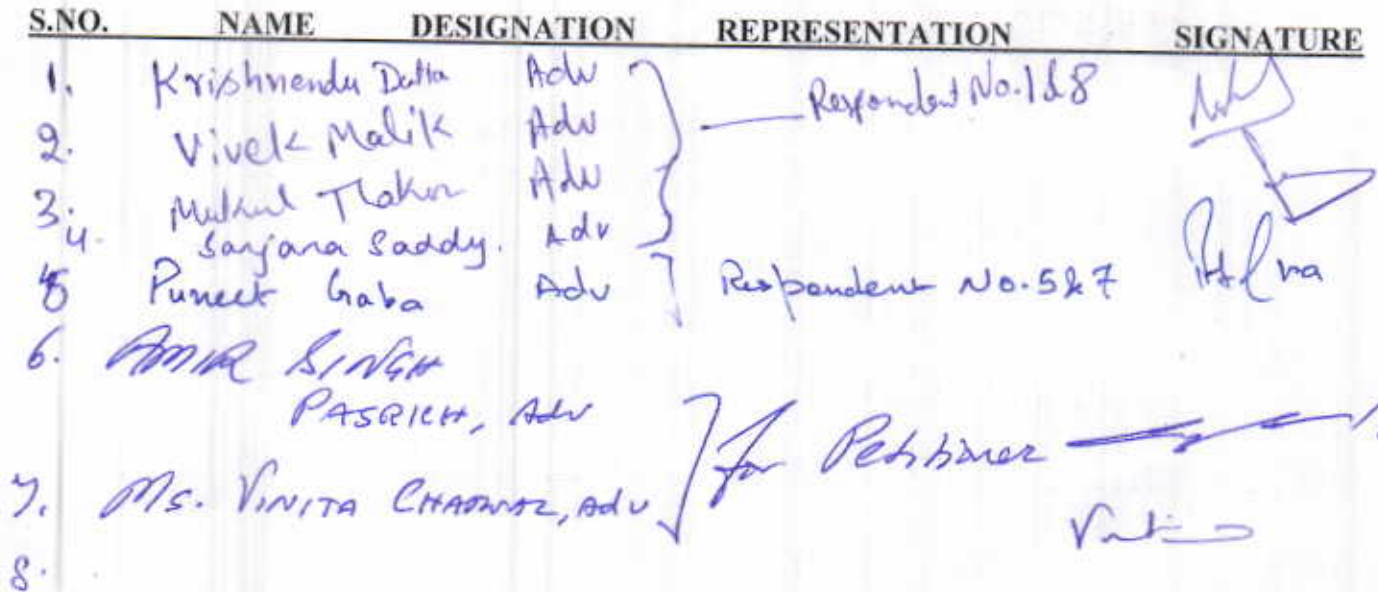 S.NO. NAME DESIGNATION REPRESENTATION SIGNATURE
1. Krishnendu Datta Adv Respondent No. 1 & 8
2. Vivek Malik Adv
3. Mukul Adv
4. Sanjana Saddy. Adv
5 Puneet Gaba Adv Respondent No. 5 & 7
6. AMIR SINGH
PASRICH, Adv
for Petitioner
7. Ms. VINITA Adv
8.